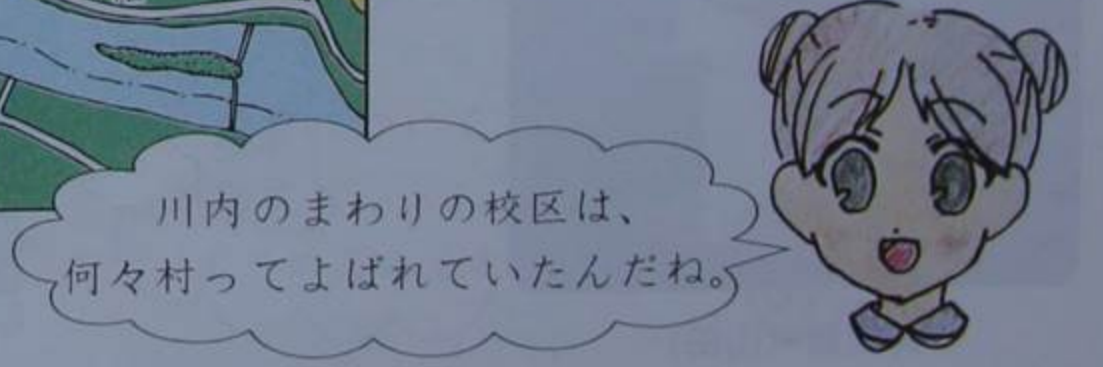 川内のまわりの校区は、
何々村ってよばれていたんだね。